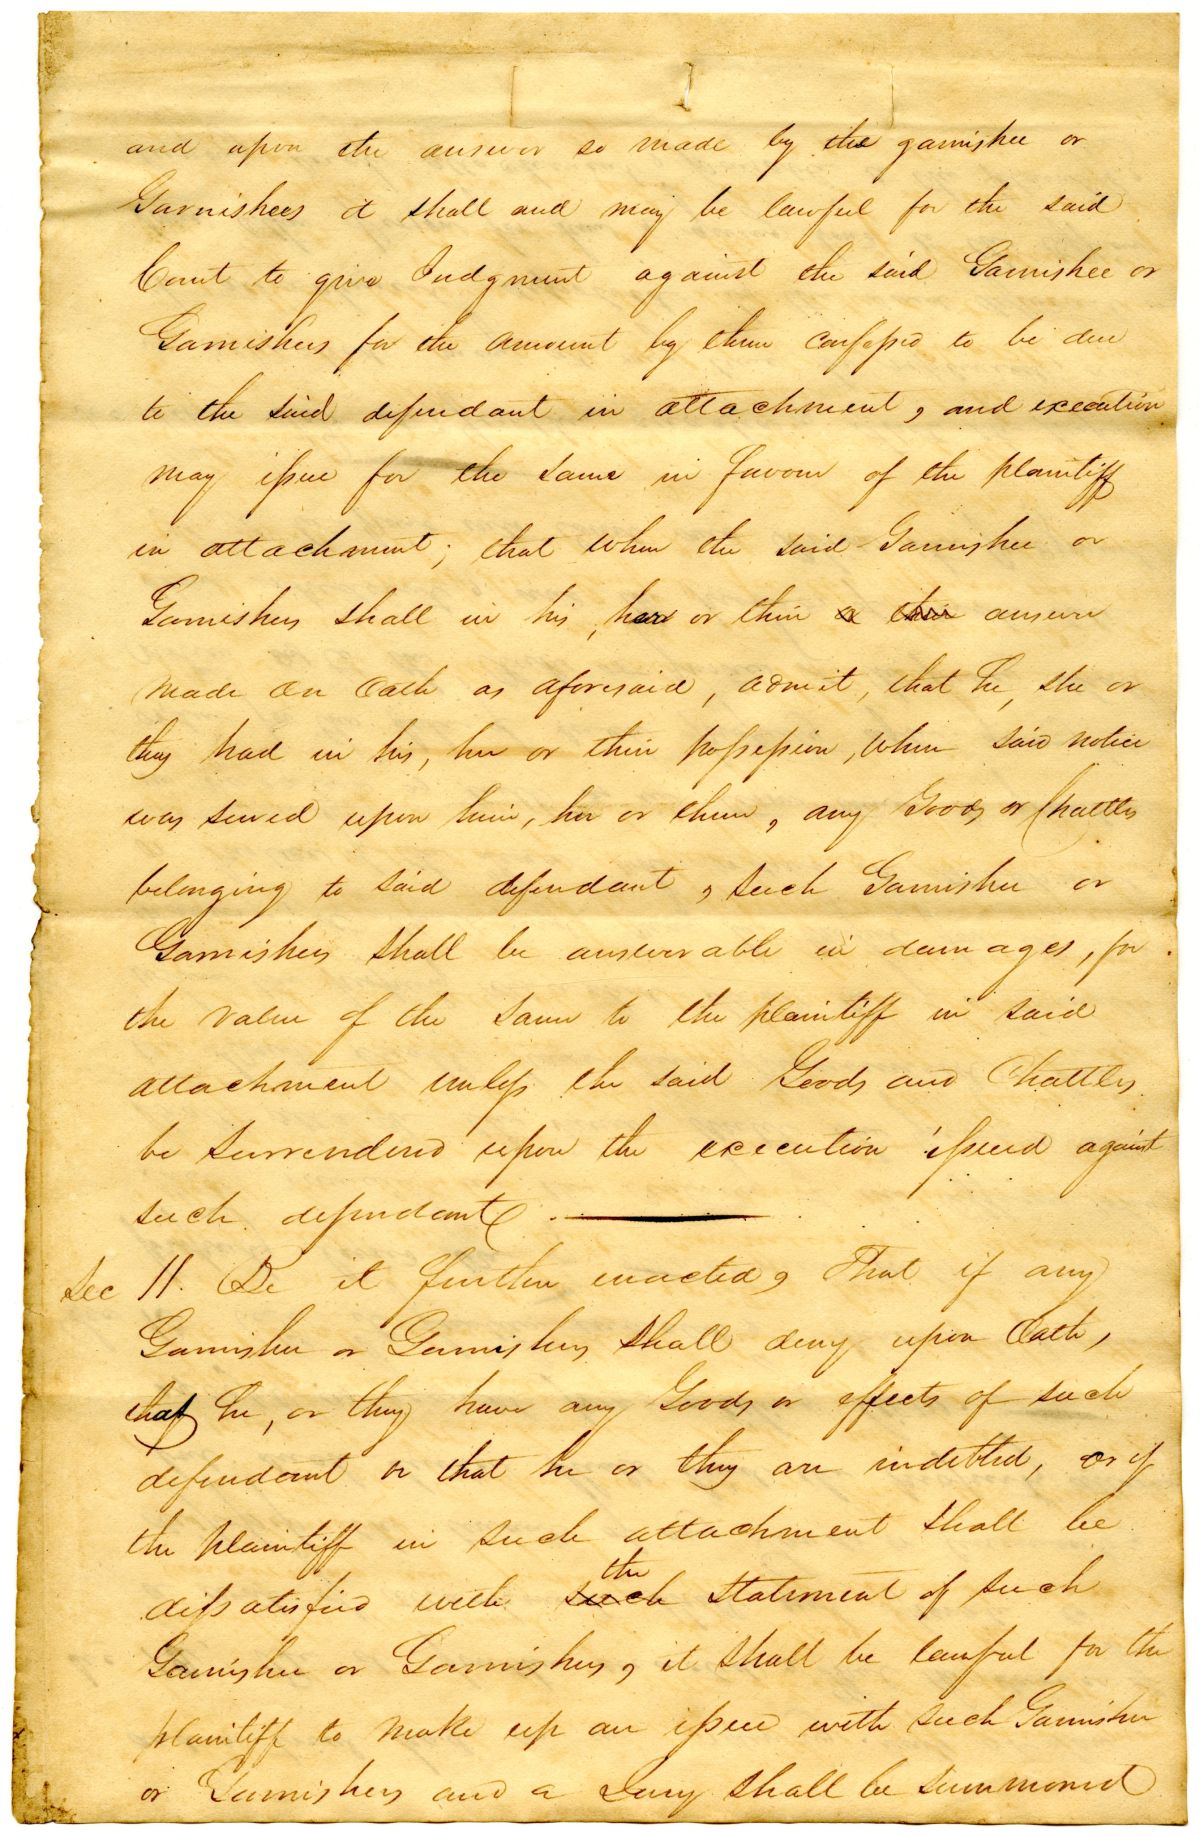 and upon the answer so made by the garnishee or
Garnishees it shall and may be lawful for the said
Court to give Judgment against the said Garnishee or
Garnishees for the amount by them confessed to be due
to the said defendant in attachment, and execution
may issue for the same in favour of the plaintiff
in attachment; that when the said Garnishee or
Garnishees shall in his, her or their a their answer
made on Oath as aforesaid, admit, that he, she or
they had in his, her or their possession, when said notice
was served upon him, her or them, any Goods or Chattles
belonging to said defendant, such Garnishee or
Garnishees shall be answerable in damages, for
the value of the same to the plaintiff in said
attachment unless the said Goods and Chattles
be surrendered upon the execution issued against
such defendant.
Sec 11. Be it further enacted, That if any
Garnishee or Garnishees shall deny upon Oath,
that he, or they have any Goods or effects of such
defendant or that he or they are indebted, or if
the plaintiff in such attachment shall be
the
dissatisfied with such statement of such
Garnishee or Garnishees, it shall be lawful for the
plaintiff to make up an issue with such Garnishee
or Garnishees and a Jury shall be summoned